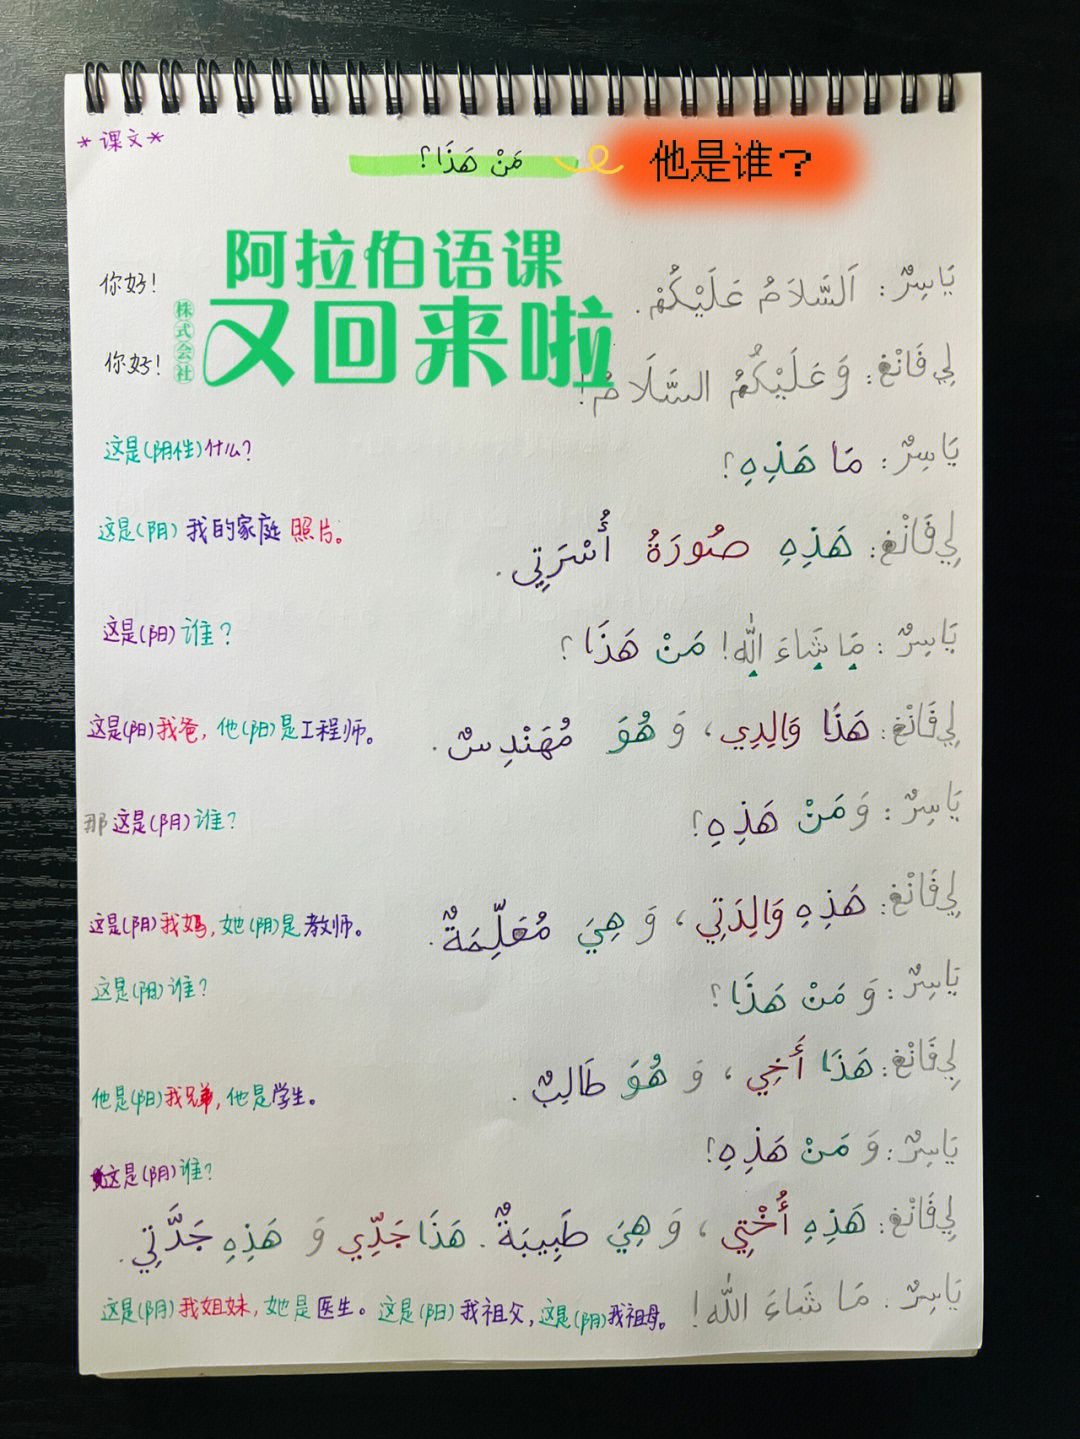 *课文*
مَنْ هَذَا؟
他是谁？
阿拉伯语课
又回来啦
株式会社
你好!
يَاسِرٌ: اَلسَّلَامُ عَلَيْكُمْ.
你好!
لِي فَانْغ: وَعَلَيْكُمُ السَّلَامُ!
这是(阴性)什么?
يَاسِرٌ: مَا هَذِهِ؟
这是(阴)我的家庭照片。
لِي فَانْغ: هَذِهِ صُورَةُ أُسْرَتِي.
这是(阳)谁?
يَاسِرٌ: مَا شَاءَ اللّٰه! مَنْ هَذَا؟
这是(阳)我爸,他(阳)是工程师。
لِي فَانْغ: هَذَا وَالِدِي، وَ هُوَ مُهَنْدِسٌ.
那这是(阴)谁?
يَاسِرٌ: وَ مَنْ هَذِهِ؟
这是(阴)我妈,她(阴)是教师。
لِي فَانْغ: هَذِهِ وَالِدَتِي، وَ هِيَ مُعَلِّمَةٌ.
这是(阳)谁?
يَاسِرٌ: وَ مَنْ هَذَا؟
他是(阳)我兄弟,他是学生。
لِي فَانْغ: هَذَا أَخِي، وَ هُوَ طَالِبٌ.
这是(阴)谁?
يَاسِرٌ: وَ مَنْ هَذِهِ؟
لِي فَانْغ: هَذِهِ أُخْتِي، وَ هِيَ طَبِيبَةٌ. هَذَا جَدِّي وَ هَذِهِ جَدَّتِي.
这是(阴)我姐妹,她是医生。这是(阳)我祖父,这是(阴)我祖母。
يَاسِرٌ: مَا شَاءَ اللّٰه!